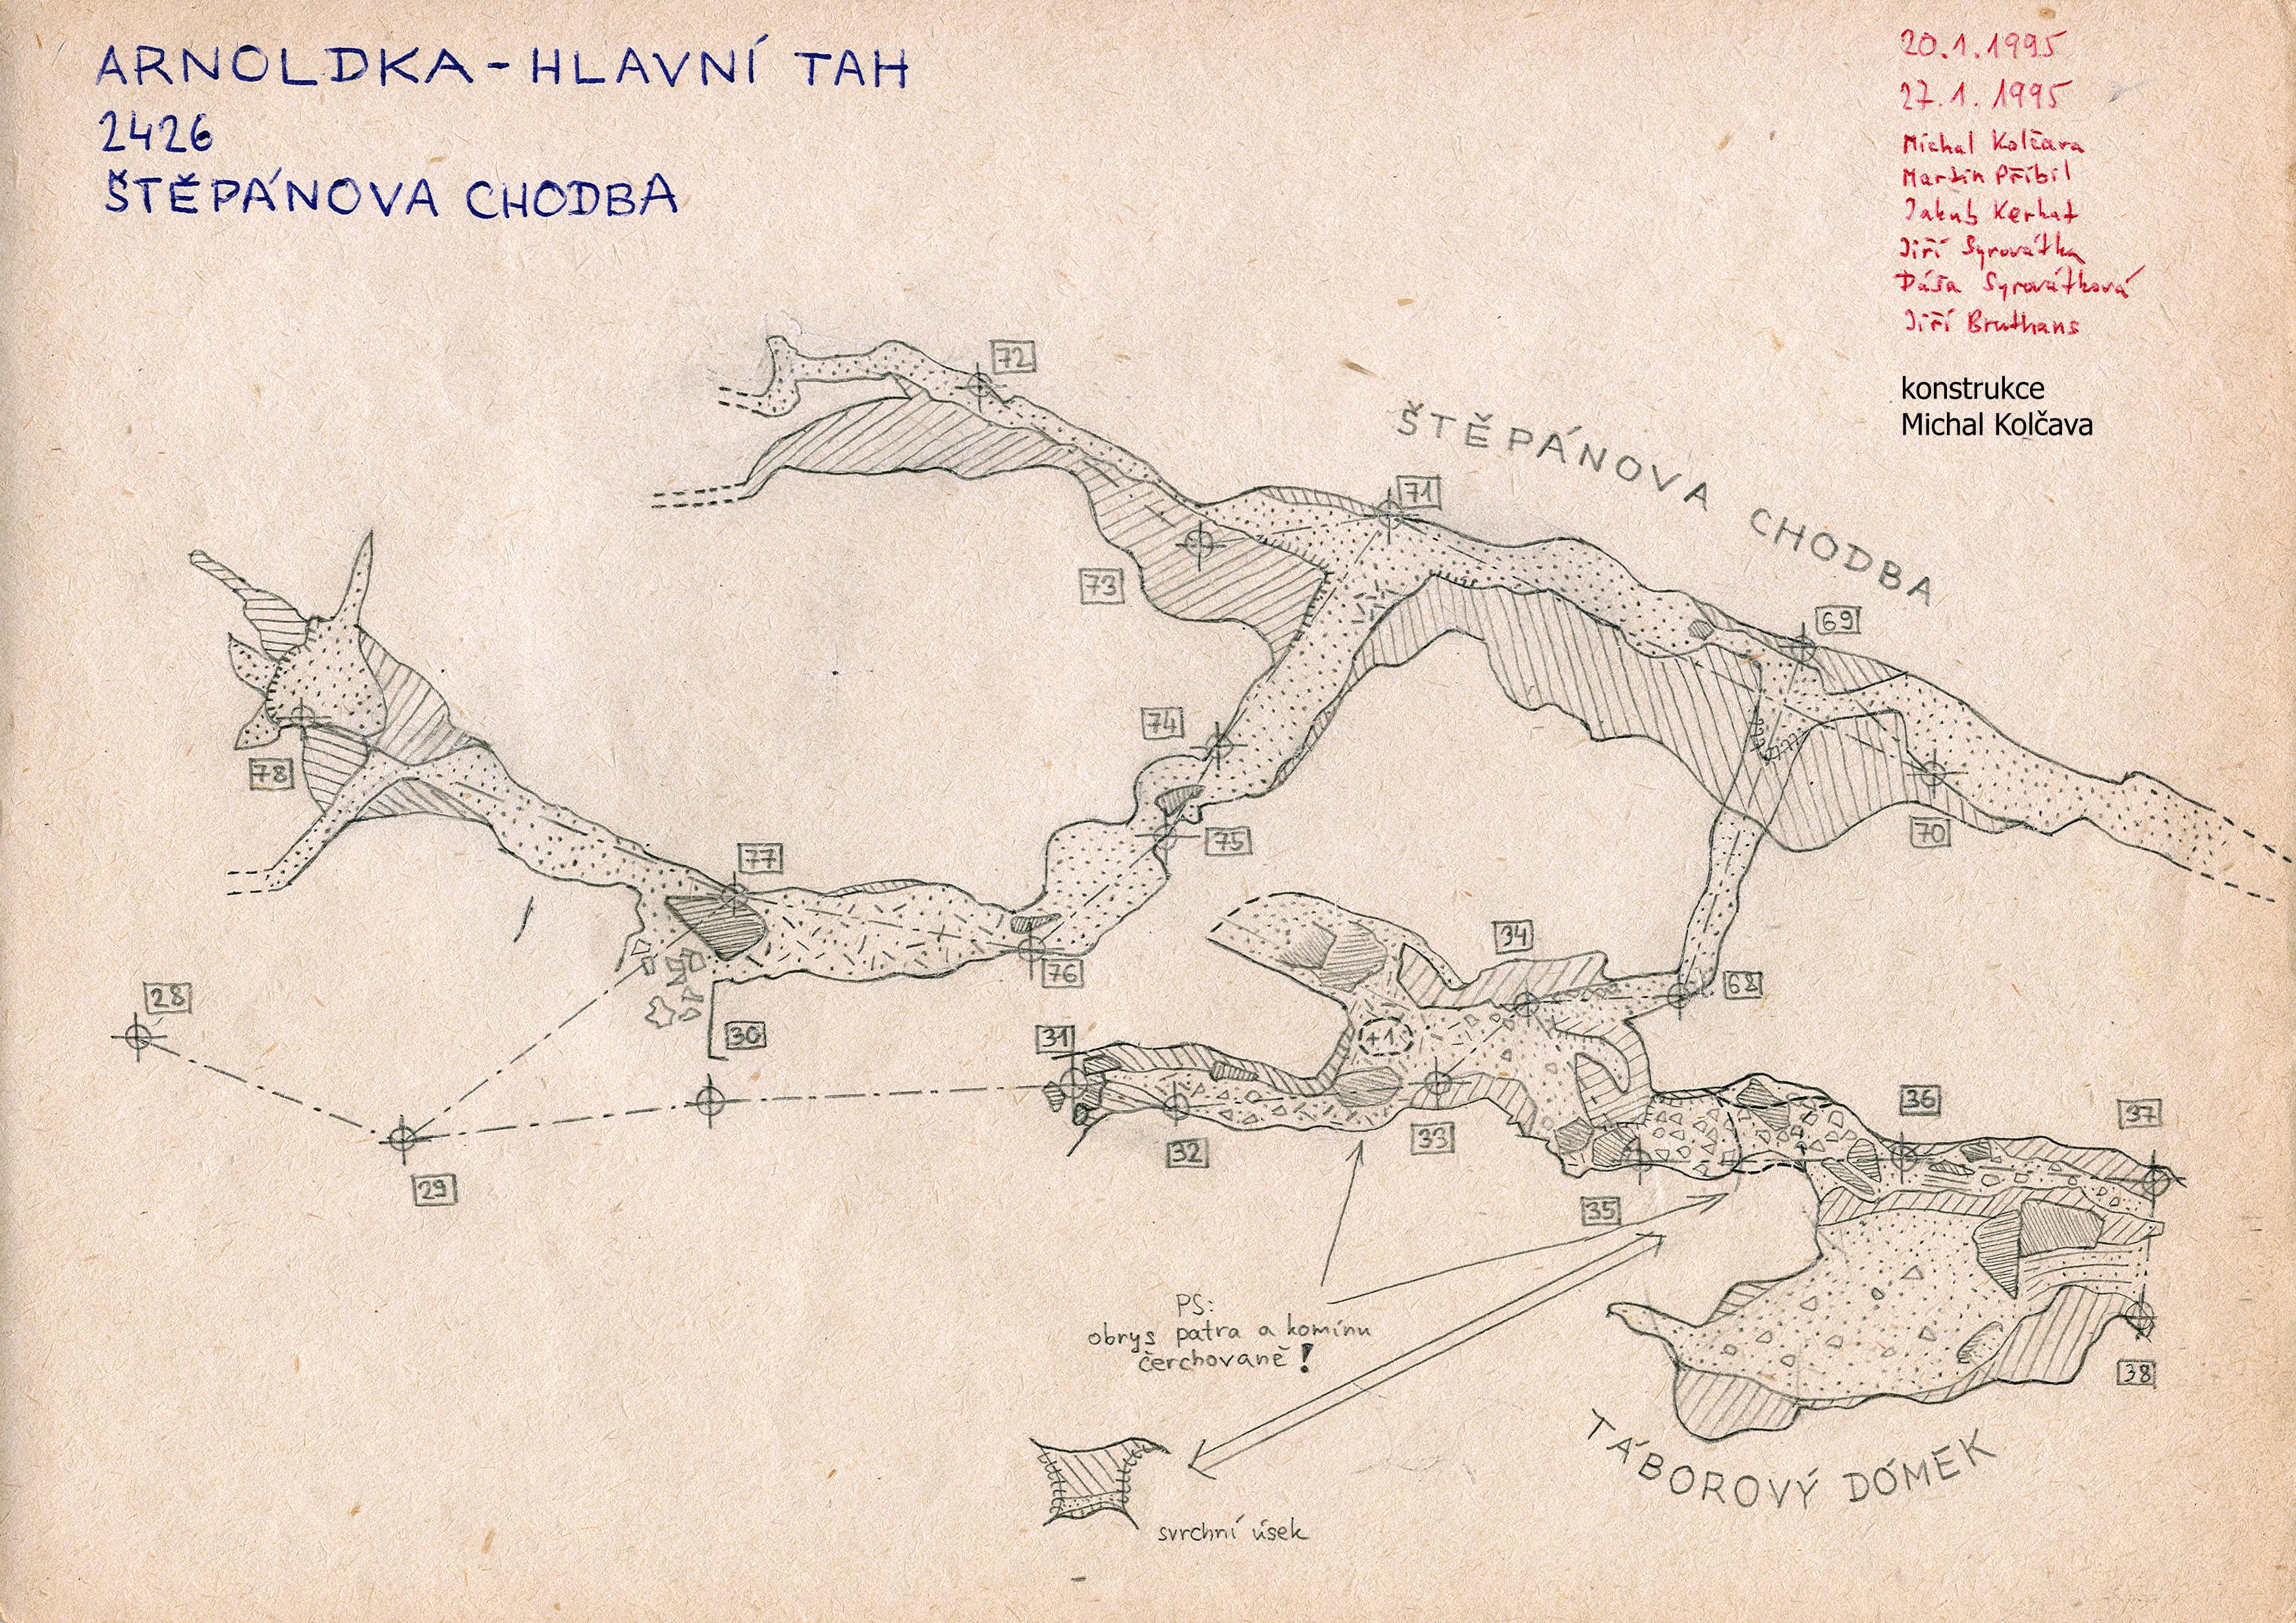 ARNOLDKA - HLAVNÍ TAH
2426
ŠTĚPÁNOVA CHODBA
20.1.1995
27.1.1995
Michal Kolčava
Martin Přibil
Jakub Kerhat
Jiří Syrovátka
Dáša Syrovátková
Jiří Bruthans
konstrukce
Michal Kolčava
72
ŠTĚPÁNOVA CHODBA
71
73
69
74
78
70
75
77
34
76
68
28
30
31
+1
36
37
32
33
29
35
PS:
obrys patra a komínu
čerchovaně!
38
TÁBOROVÝ DÓMEK
svrchní úsek